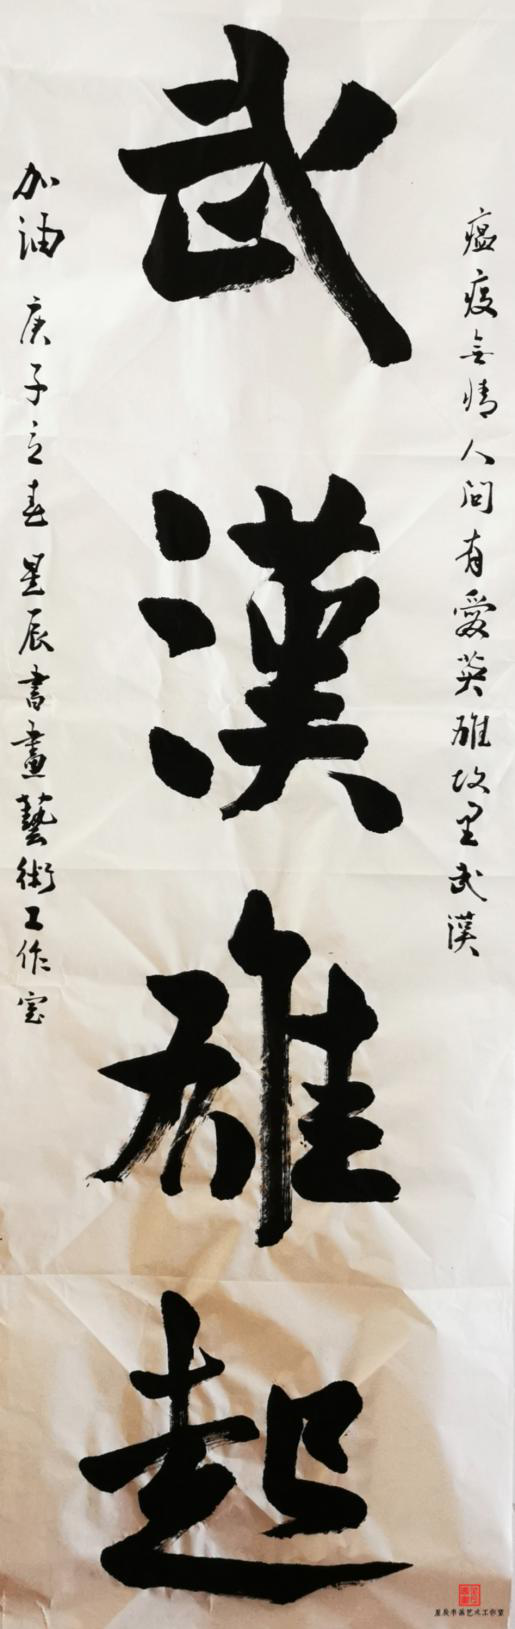 武漢雄起
瘟疫無情人間有愛英雄故里武漢
加油 庚子立春 星辰書畫藝術工作室
星辰书画艺术工作室